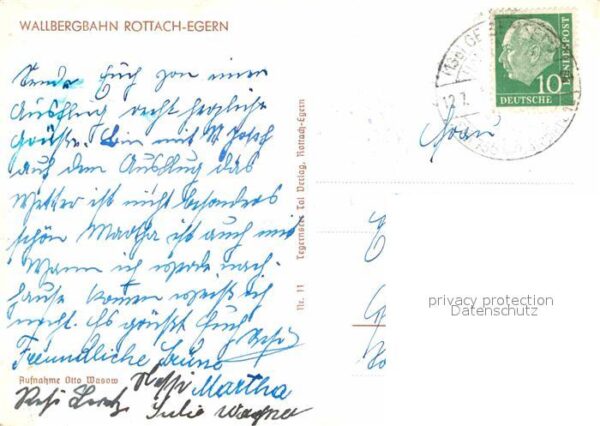 WALLBERGBAHN ROTTACH-EGERN
Sende Euch von einen
Ausflug recht herzliche
Grüße. Bin mit
auf dem Ausflug das
Wetter ist nicht besonders
schön Martha ist auch mit
Wann ich werde nach-
hause kommen weiß ich
nicht. Es grüßt Euch
Resi
Freundliche
Aufnahme Otto Wasow
Martha
Resi
Julie Wagner
Nr. 11 Tegernseer Tal Verlag, Rottach-Egern
10
DEUTSCHE
BUNDESPOST
12.7.
Frau
privacy protection
Datenschutz